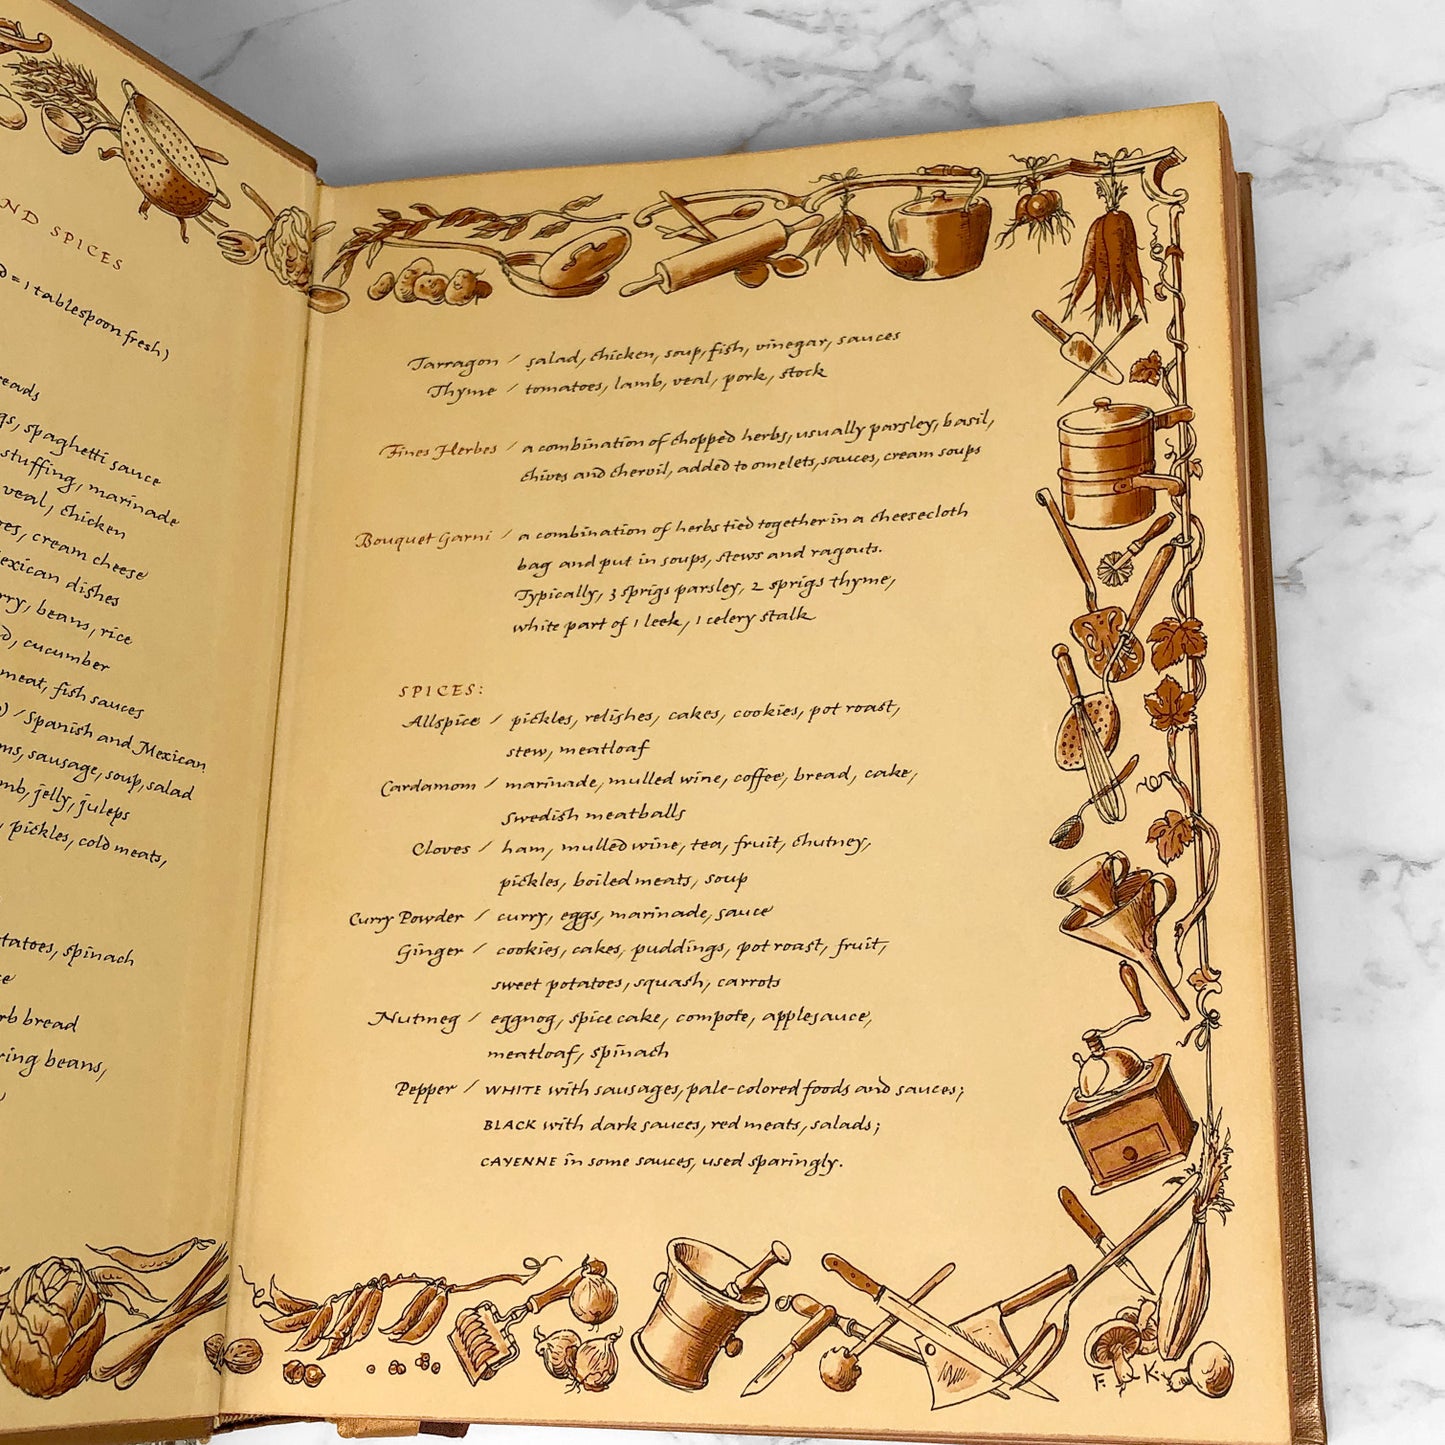 ND SPICES
= 1 tablespoon fresh)
spaghetti sauce
stuffing, marinade
veal, chicken
cream cheese
dishes
beans, rice
cucumber
meat, fish sauces
/ Spanish and Mexican
sausage, soup, salad
jelly, juleps
pickles, cold meats,
spinach
bread
beans,
Tarragon / salad, chicken, soup, fish, vinegar, sauces
Thyme / tomatoes, lamb, veal, pork, stock
Fines Herbes / a combination of chopped herbs, usually parsley, basil,
chives and chervil, added to omelets, sauces, cream soups
Bouquet Garni / a combination of herbs tied together in a cheesecloth
bag and put in soups, stews and ragouts.
Typically, 3 sprigs parsley, 2 sprigs thyme,
white part of 1 leek, 1 celery stalk
SPICES:
Allspice / pickles, relishes, cakes, cookies, pot roast,
stew, meatloaf
Cardamom / marinade, mulled wine, coffee, bread, cake,
Swedish meatballs
Cloves / ham, mulled wine, tea, fruit, chutney,
pickles, boiled meats, soup
Curry Powder / curry, eggs, marinade, sauce
Ginger / cookies, cakes, puddings, pot roast, fruit,
sweet potatoes, squash, carrots
Nutmeg / eggnog, spice cake, compote, applesauce,
meatloaf, spinach
Pepper / WHITE with sausages, pale-colored foods and sauces;
BLACK with dark sauces, red meats, salads;
CAYENNE in some sauces, used sparingly.
F. K.